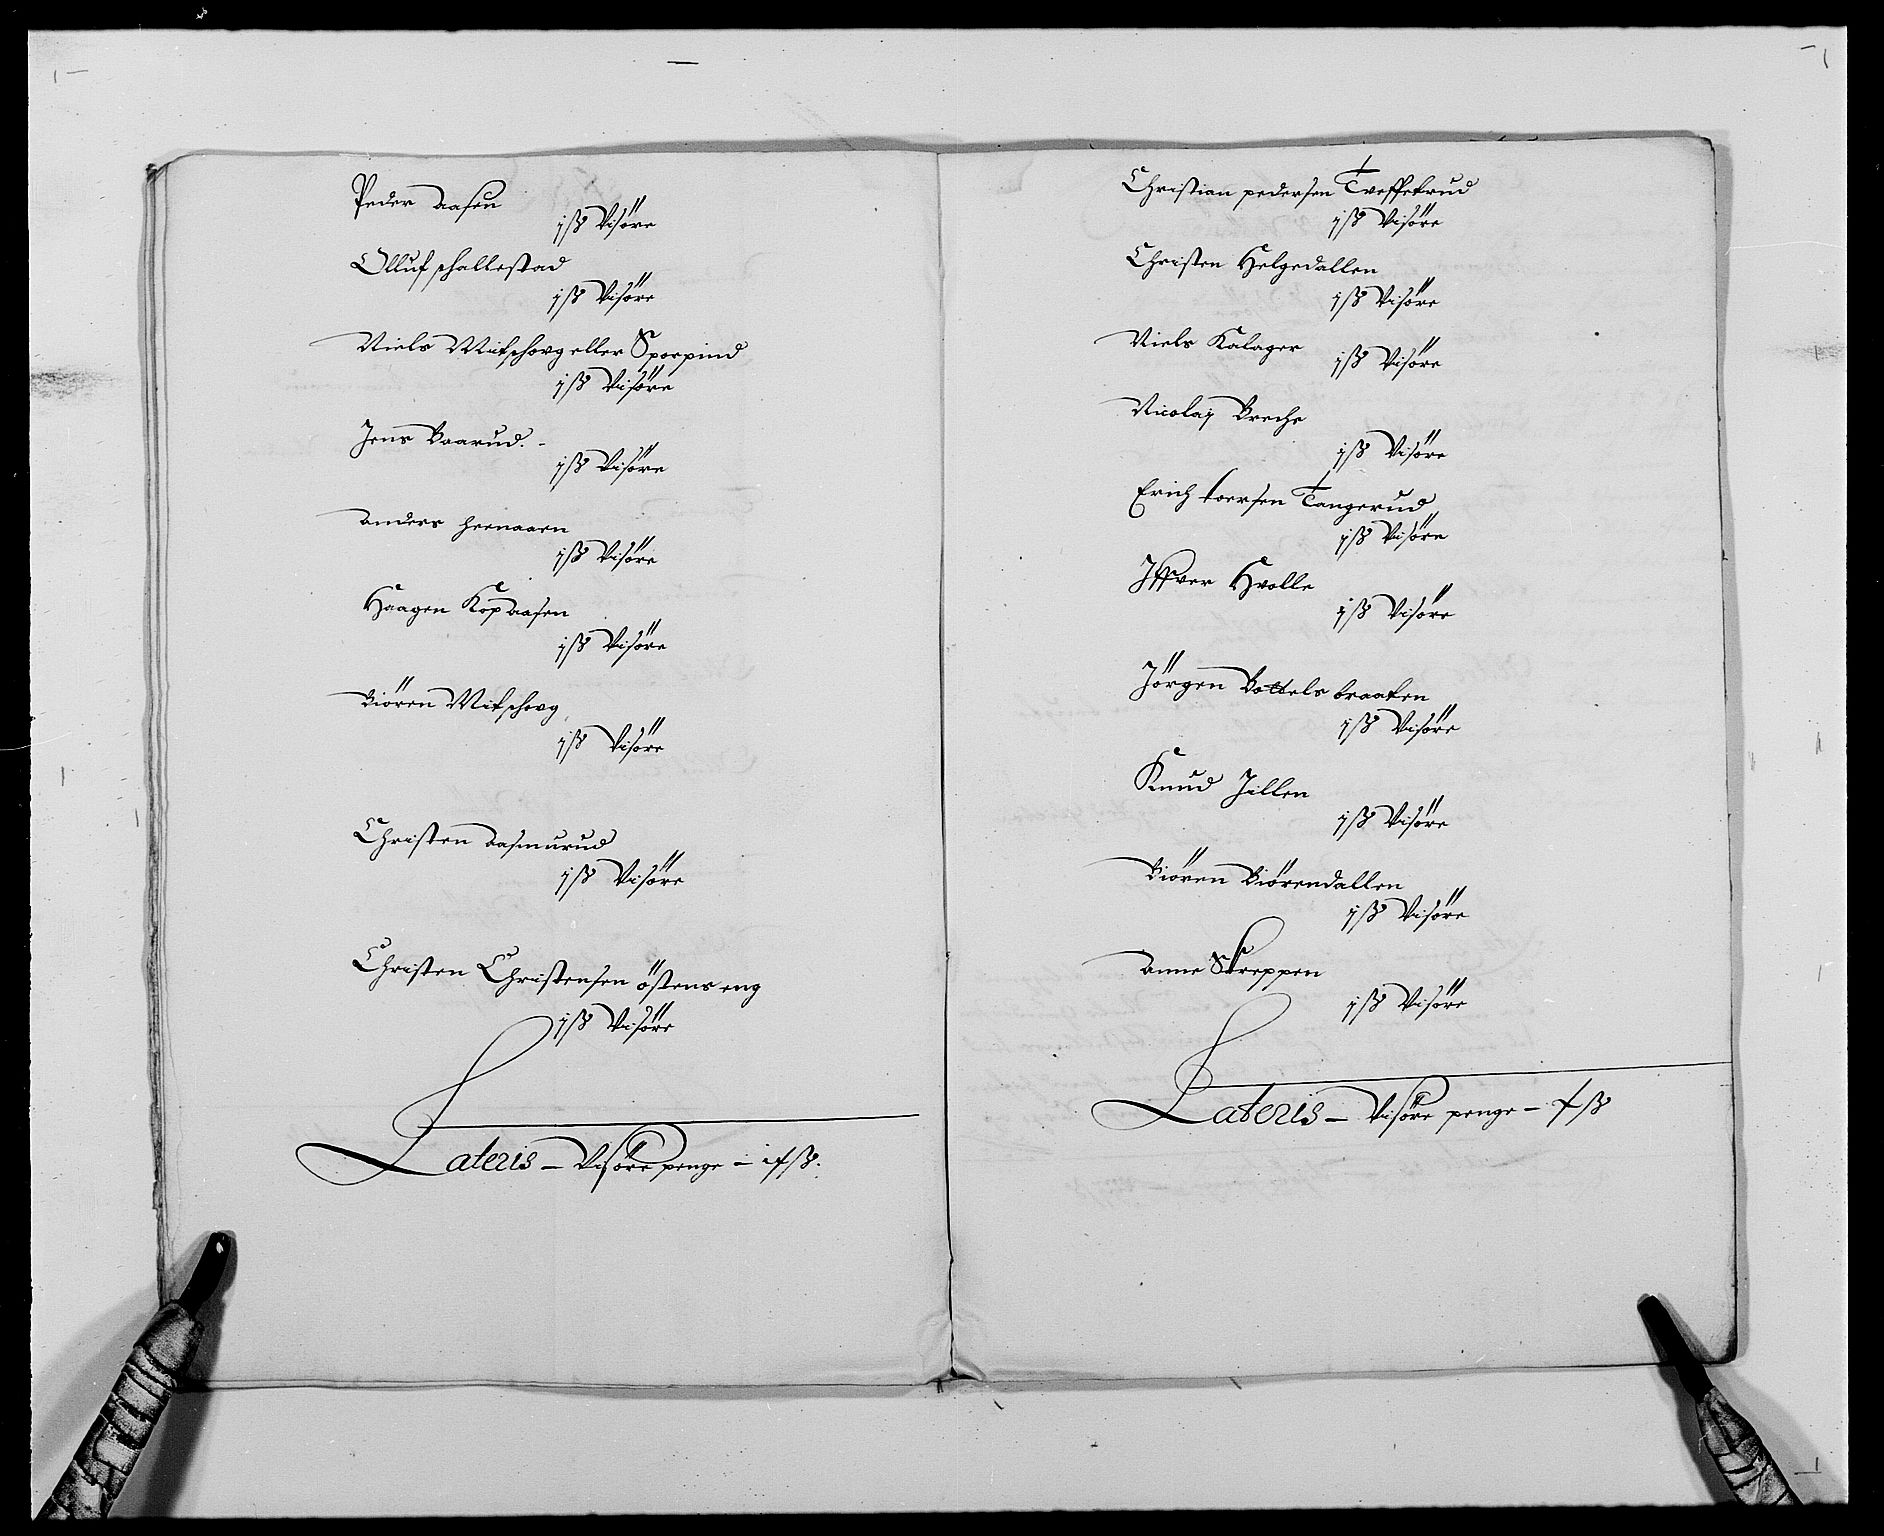 Peder Aasen
j ß Visøre
Olluf schallestad
j ß Visøre
Niels Mitschovg eller Sporpind
j ß Visøre
Jens Baarud.
j ß Visøre
Anders
j ß Visøre
Haagen Kopaasen
j ß Visøre
Biören Mitschovg
j ß Visøre
Christen Aasmurud
j ß Visøre
Christen Christensen östens eng
j ß Visøre
Lateris – Visøre penge –
Christian pedersen
j ß Visøre
Christen Helgedallen
j ß Visøre
Niels Kalager
j ß Visøre
Nicolaj Breche
j ß Visøre
Erich toersen Tangerud
j ß Visøre
Iffver Hvolle
j ß Visøre
Jörgen Bottels braaten
j ß Visøre
Knud Jillen
j ß Visøre
Biören Biörendallen
j ß Visøre
Anne Streppen
j ß Visøre
Lateris – Visøre penge –